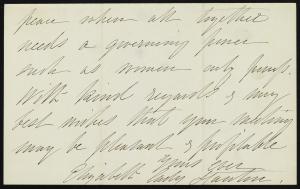 peace when all together
needs a governing power
such as women only
With kind regards & my
best wishes that your meeting
may be pleasant & profitable
Yours ever
Elizabeth Cady Stanton.